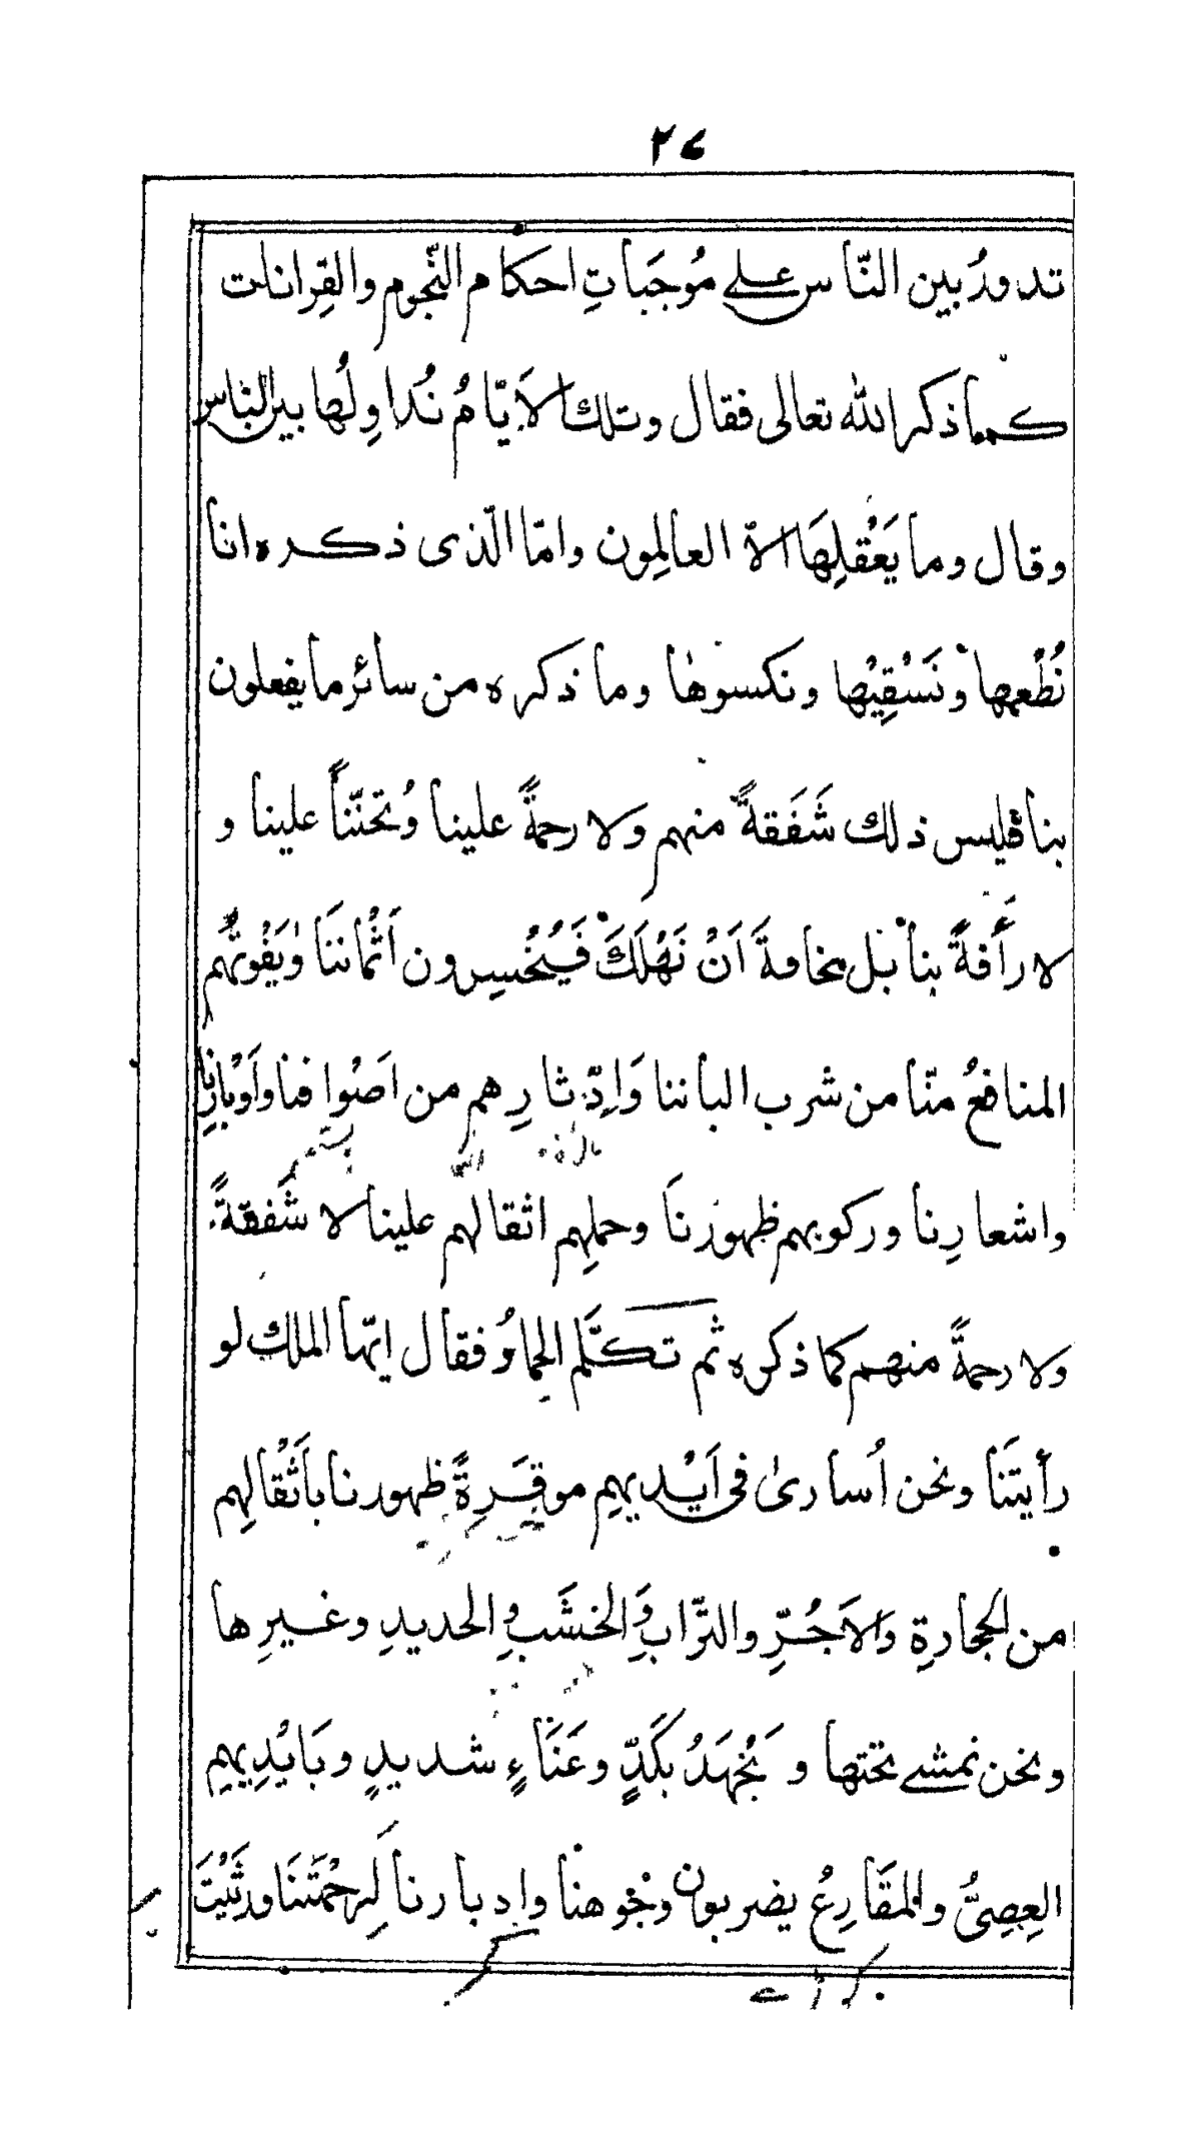 ٢٤
تدورُ بين النّاس على مُوجَباتِ احكام النّجوم والقِرانات
كما ذكر الله تعالى فقال وتلك الاَيّامُ نُداوِلُها بين النّاس
وقال وما يَعْقلِهَا الاّ العالِمون وامّا الّذى ذكره انا
نُطْعمها ونَسْقِيْها ونكسوها وما ذكره من سائر ما يفعلون
بنا فليس ذلك شَفَقةً منهم ولا رحمةً علينا وُتحنّناً علينا و
لا رأَفةً بنا بل مخافةَ اَنْ نَهْلَكَ فَيُخْسِرون اَثْماننَا وَيَفْوتُهم
المنافعُ منّا من شرب الباننا وَاِدّثارِهم من اصَوْافنا واَوْبارِنا
واشعارِنا وركوبهم ظهورَنا وحملِهم اثقالهم علينا لا شَفقةً
ولا رحمةً منهم كما ذكره ثم تكلّم الحمارُ فقال ايّها الملك لو
رأيتَنا ونحن اُسارىٰ فى اَيْديهِم موقَرِةً ظهورنا باَثْقالِهم
من الحجارةِ والاَجُرِّ والترّابِ والخشَبِ والحديدِ وغيرِها
ونحن نمشے تحتها و نَجْهَدُ بكَدٍّ وعَنَاءٍ شديدٍ وبَايْدِيهِم
العِصِىُّ والمقَارِعُ يضربون وُجْوهنا وادبارنا لَرحْمَتَنا ورَثَيْتَ